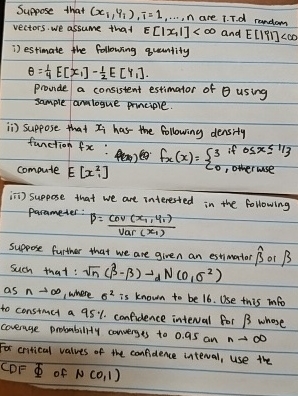 Suppose that (x₁,Y₁), i=1,...,n are i.i.d random
vectors. we assume that E[|X₁|] < ∞ and E[|Y|] < ∞
i) estimate the following quantity
θ = ¼ E[X₁] - ½ E[Y₁].
provide a consistent estimator of θ using
sample analogue principle.
ii) Suppose that X₁ has the following density
function fx : fx(x) = { 3 if 0≤x≤1/3
0, otherwise
compute E[X₁²]
iii) Suppose that we are interested in the following
parameter: β = cov(X₁,Y₁)
Var(X₁)
Suppose further that we are given an estimator β̂ of β
such that : √n (β̂-β) →d N(0,σ²)
as n → ∞, where σ² is known to be 16. Use this info
to construct a 95% confidence interval for β whose
coverage probability converges to 0.95 an n → ∞
For critical values of the confidence interval, use the
CDF Φ of N(0,1)